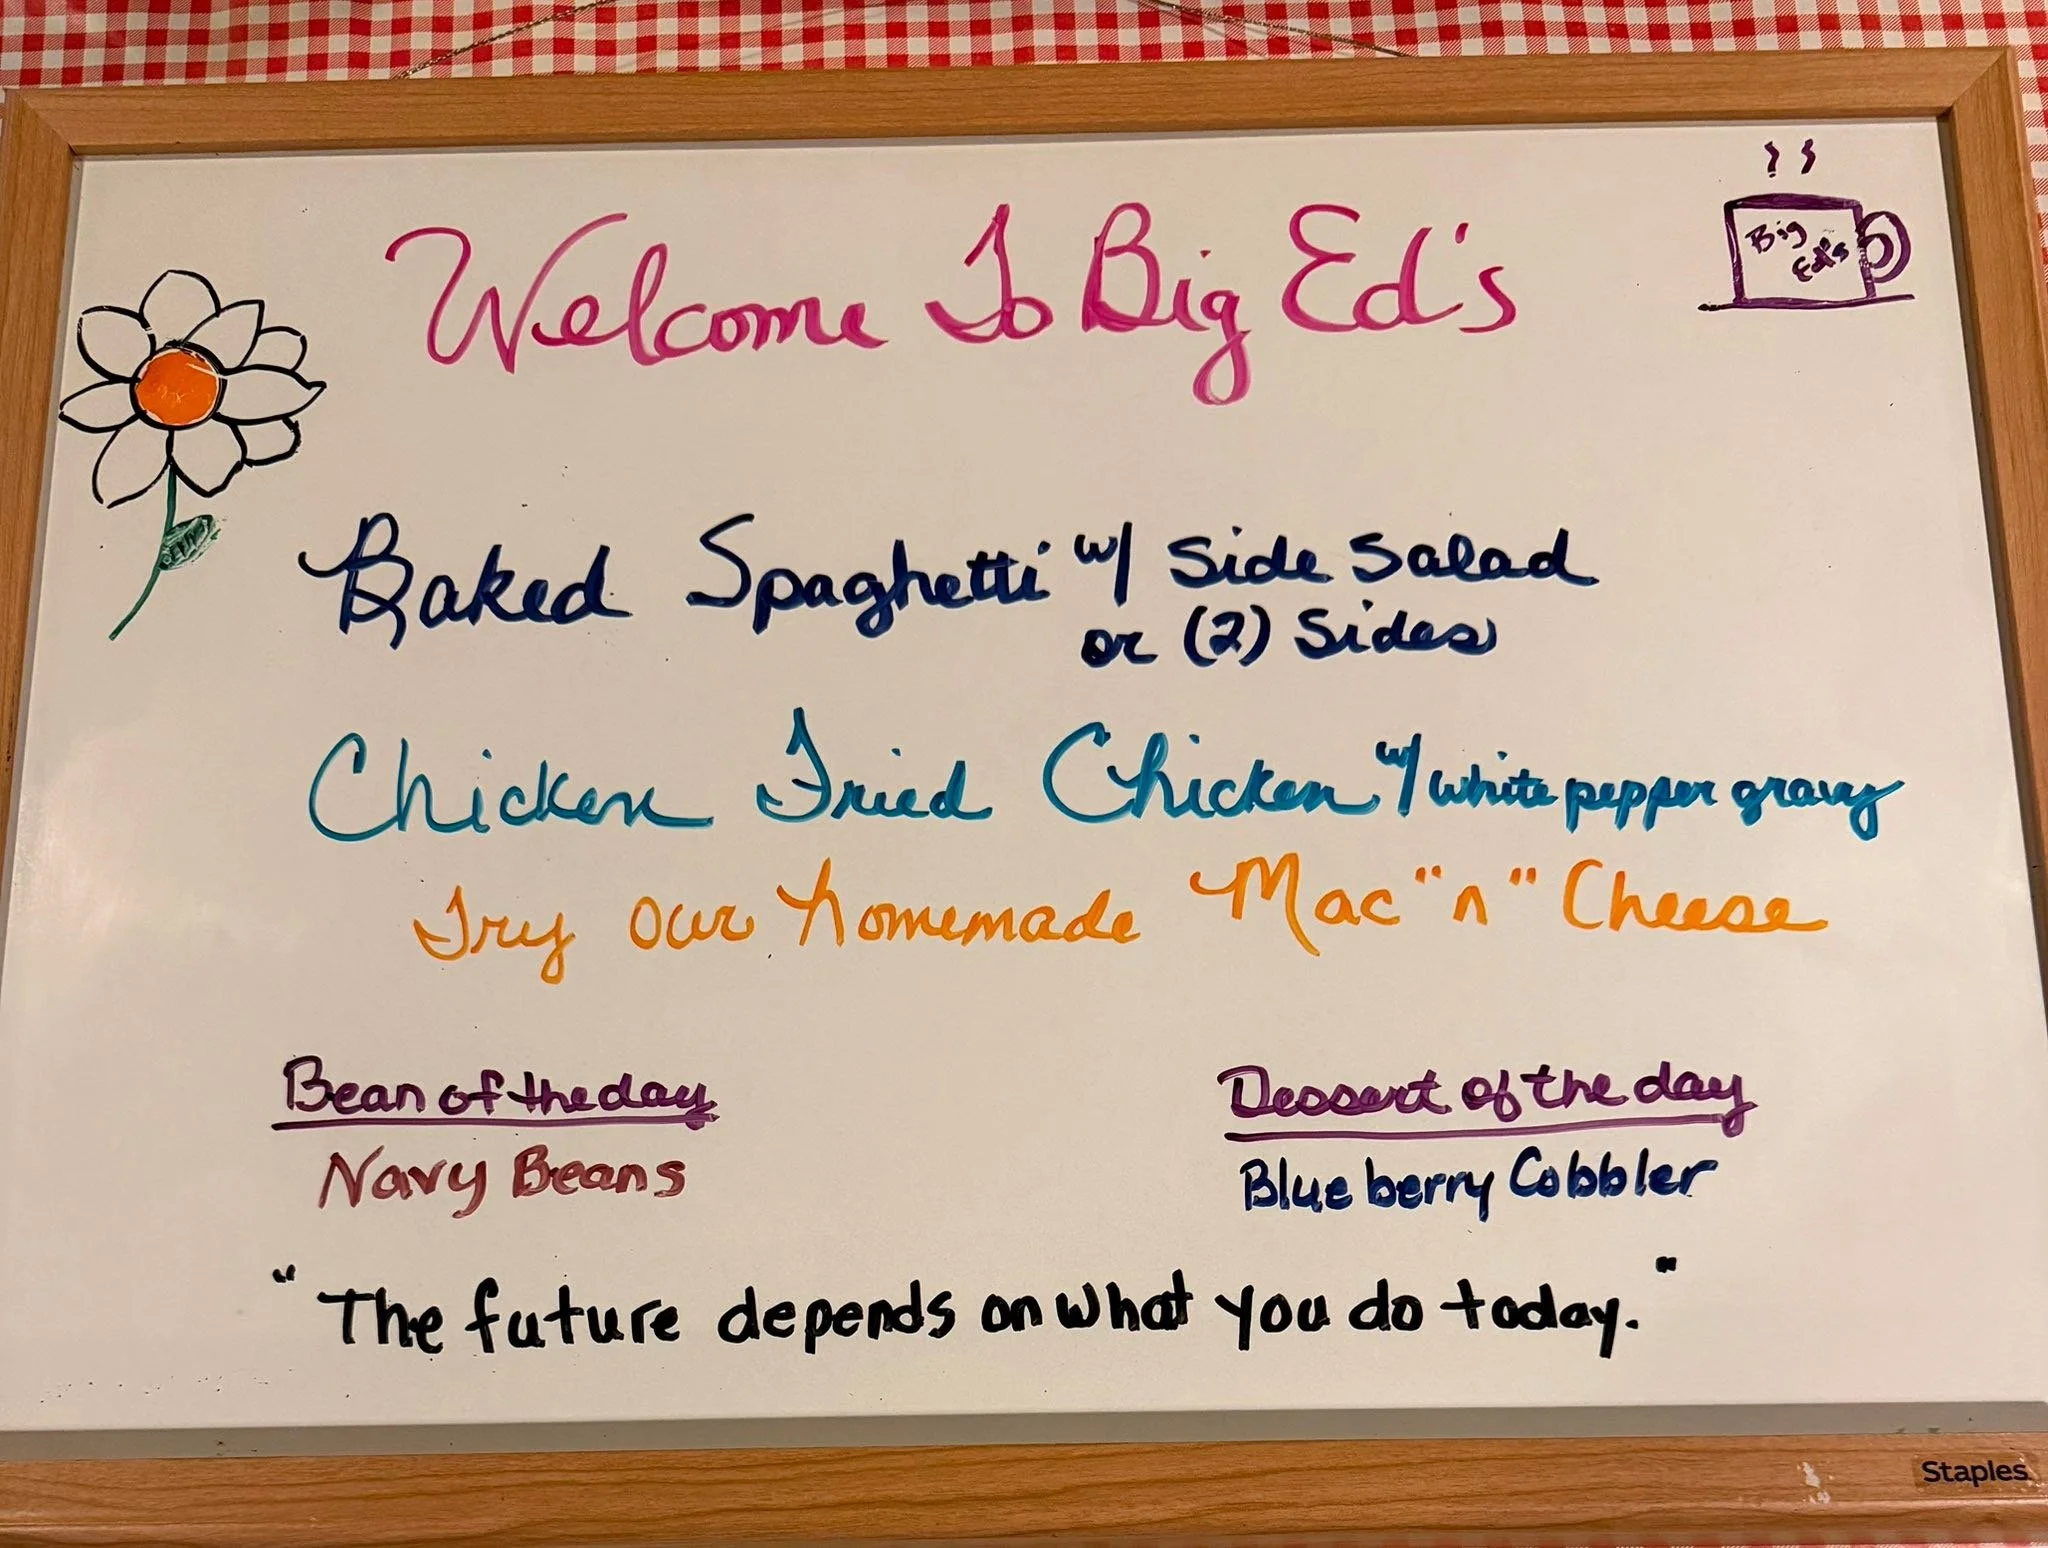 Welcome To Big Ed's
Big
Ed's
Baked Spaghetti w/ Side Salad
or (2) Sides
Chicken Fried Chicken w/ white pepper gravy
Try Our homemade Mac "n" Cheese
Bean of the day
Navy Beans
Dessert of the day
Blueberry Cobbler
"The future depends on what you do today."
Staples